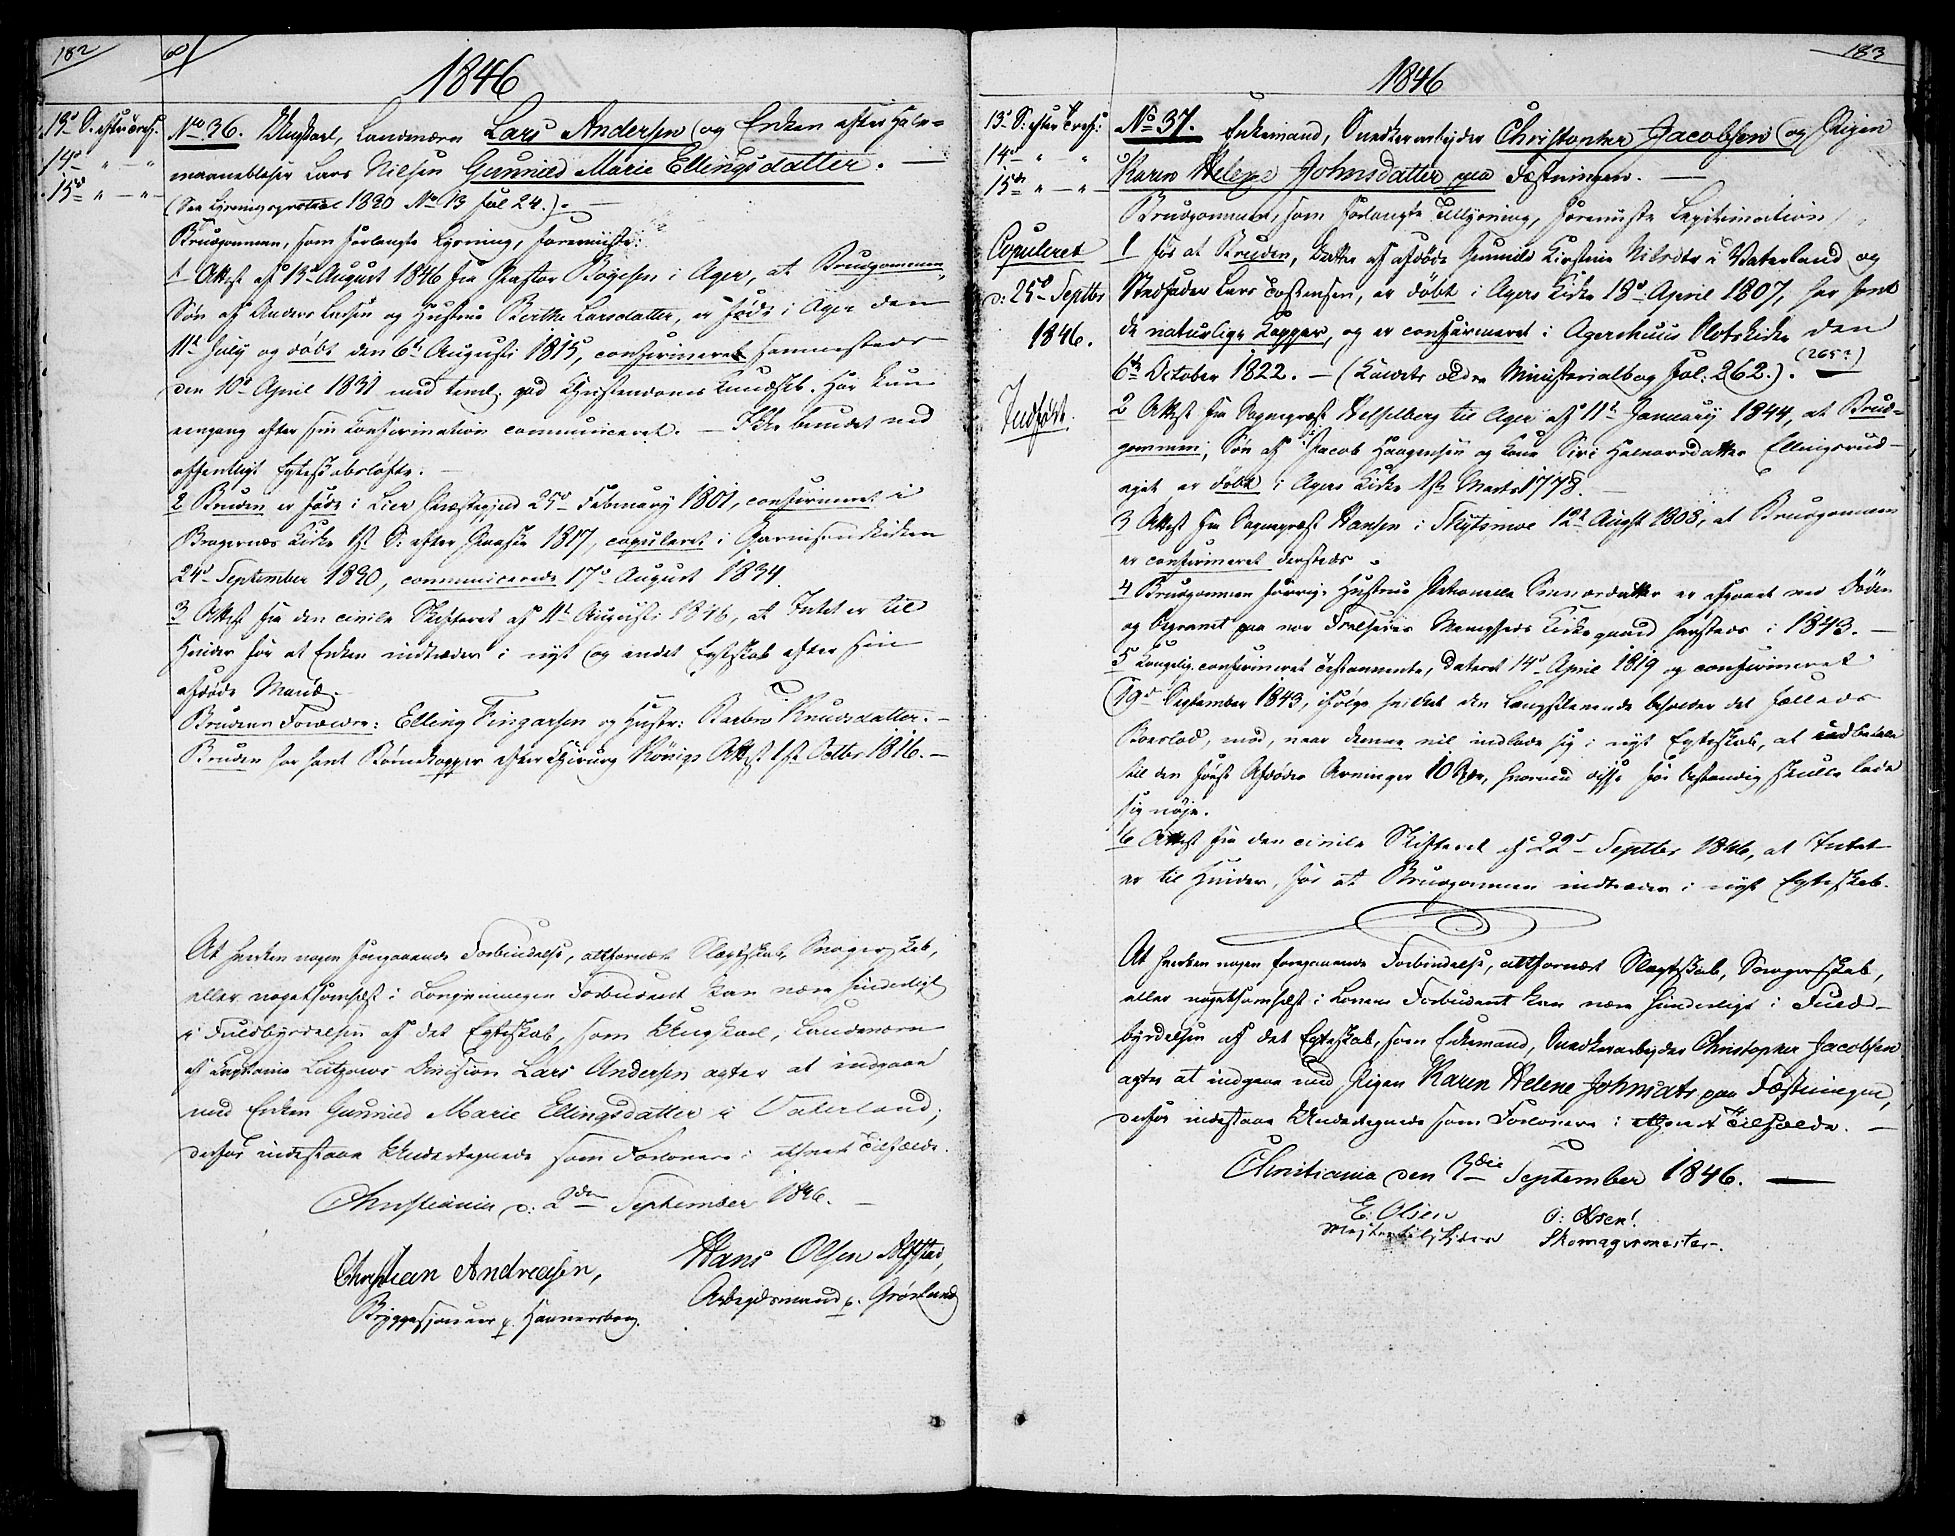 182
1846
13d S. efter Tref.
14d " — "
15d " — " —
No 36. Ungkarl, Landværn Lars Andersen og Enken efter Halv-
maaneblæser Lars Nilsen Gunnild Marie Ellingsdatter. —
(See Lysningsprotocol 1830 No 13 fol 24.). —
Brudgommen, som forlangte Lysning, foreviiste:
1 Attest af 13d August 1846 fra Pastor i Ager, at Brudgommen,
Søn af Anders Larsen og Hustrue Berthe Larsdatter, er født i Ager den
11te July og døbt den 6te Augusti 1815, confirmeret sammesteds
den 10d April 1831 med teml. god Christendoms Kundskb. Har kun
eengang efter sin Confirmation communiceret. — Ikke bundet ved
offentligt Egteskabsløfte. —
2 Bruden er født i Lier Præstegjeld 25d February 1801, confirmeret i
Bragernæs Kirke 1st S. efter Paaske 1817, copuleret i Garnisonskirken
24d September 1830, communicerede 17d August 1834.
3 Attest fra den civile Skifteret af 4d Augusti 1846, at Intet er til
Hinder for at Enken indtræder i nyt og andet Egteskab efter sin
afdøde Mand.
Brudens Forældre: Elling Fingarsen og Hustr: Barbro Knudsdatter. —
Bruden har havt Børnekopper efter Chirurg Königs Attest 1st Octbr 1816. —
At hverken nogen foregaaende Forbindelse, altfornært Slægtskab, Svogerskab,
eller nogetsomhelst i Lovgivningen Forbudent kan være hinderligt
i Fuldbyrdelsen af det Egteskab, som Ungkarl, Landværn
af Capitaine Lützows Division Lars Andersen agter at indgaae
med Enken Gunnild Marie Ellingsdatter i Vaterland,
derfor indestaae Undertegnede som Forlovere i ethvert Tilfælde.
Christiania d: 2den September 1846. —
Christian Andreasen,
Bryggesjouer p. Hammersborg.
Hans Olsen
Arbeidsmand p. Grønland
183
1846
13d S: efter Tref:
14d " "
15de " — " —
Copuleret
d: 25d Septbr
1846.
Indført.
No 37. Enkemand, Snedkerarbejder Christopher Jacobsen og Pigen
Karen Helene Johnsdatter paa Fæstningen. —
Brudgommen, som forlangte Tillysning, foreviiste Legitimation
1 for at Bruden, Datter af afdøde Gunnild Kirstine Nilsdtr i Vaterland og
Stedfader Lars Torstensen, er døbt i Agers Kirke 18d April 1807, har havt
de naturlige Kopper, og er confirmeret i Agershuus Slotskirke den
6te October 1822. — (Kaldets ældre Ministerialbog fol: 262.). (265?)
2 Attest fra Sognepræst Hesselberg til Ager af 11te January 1844, at Brud-
gommen, Søn af Jacob Haagensen og Kone Siri Halvorsdatter Ellingsrud-
ejet er døbt i Agers Kirke 1ste Marts 1778.
3 Attest fra Sognepræst Hansen i Skydsmoe 12te Augst 1808, at Brudgommen
er confirmeret dersteds.
4 Brudgommen forrige Hustrue Petronelle Svenordatter er afgaaet ved Døden
og begravet paa vor Frelsers Menigheds Kirkegaard hersteds i 1843. —
5 Kongelig confirmeret Testamente, dateret 14d April 1819 og confirmeret
19d September 1843, ifølge hvilket den Længstlevende beholder det fælleds
Boeslod, mod, naar denne vil indlade sig i nyt Egteskab, at udbetale
til den først Afdødes Arvinger 10 Rdr, hvormed disse for bestandig skulle lade
sig nøje.
6 Attest fra den civile Skifteret af 22d Septbr 1846, at Intet
er til Hinder, for at Brudgommen indtræder i nyt Egteskab.
At hverken nogen foregaaende Forbindelse, altfornært Slægtskab, Svogerskab,
eller nogetsomhelst i Loven Forbudent kan være hinderligt i Fuld-
byrdelsen af det Egteskab, som Enkemand, Snedkerarbejder Christopher Jacobsen
agter at indgaae med Pigen Karen Helene Johnsdtr paa Fæstningen,
derfor indestaae Undertegnede som Forlovere i ethvert Tilfælde. —
Christiania den 7die September 1846. —
E: Olsen
O: Olsen!
Skomagermester.